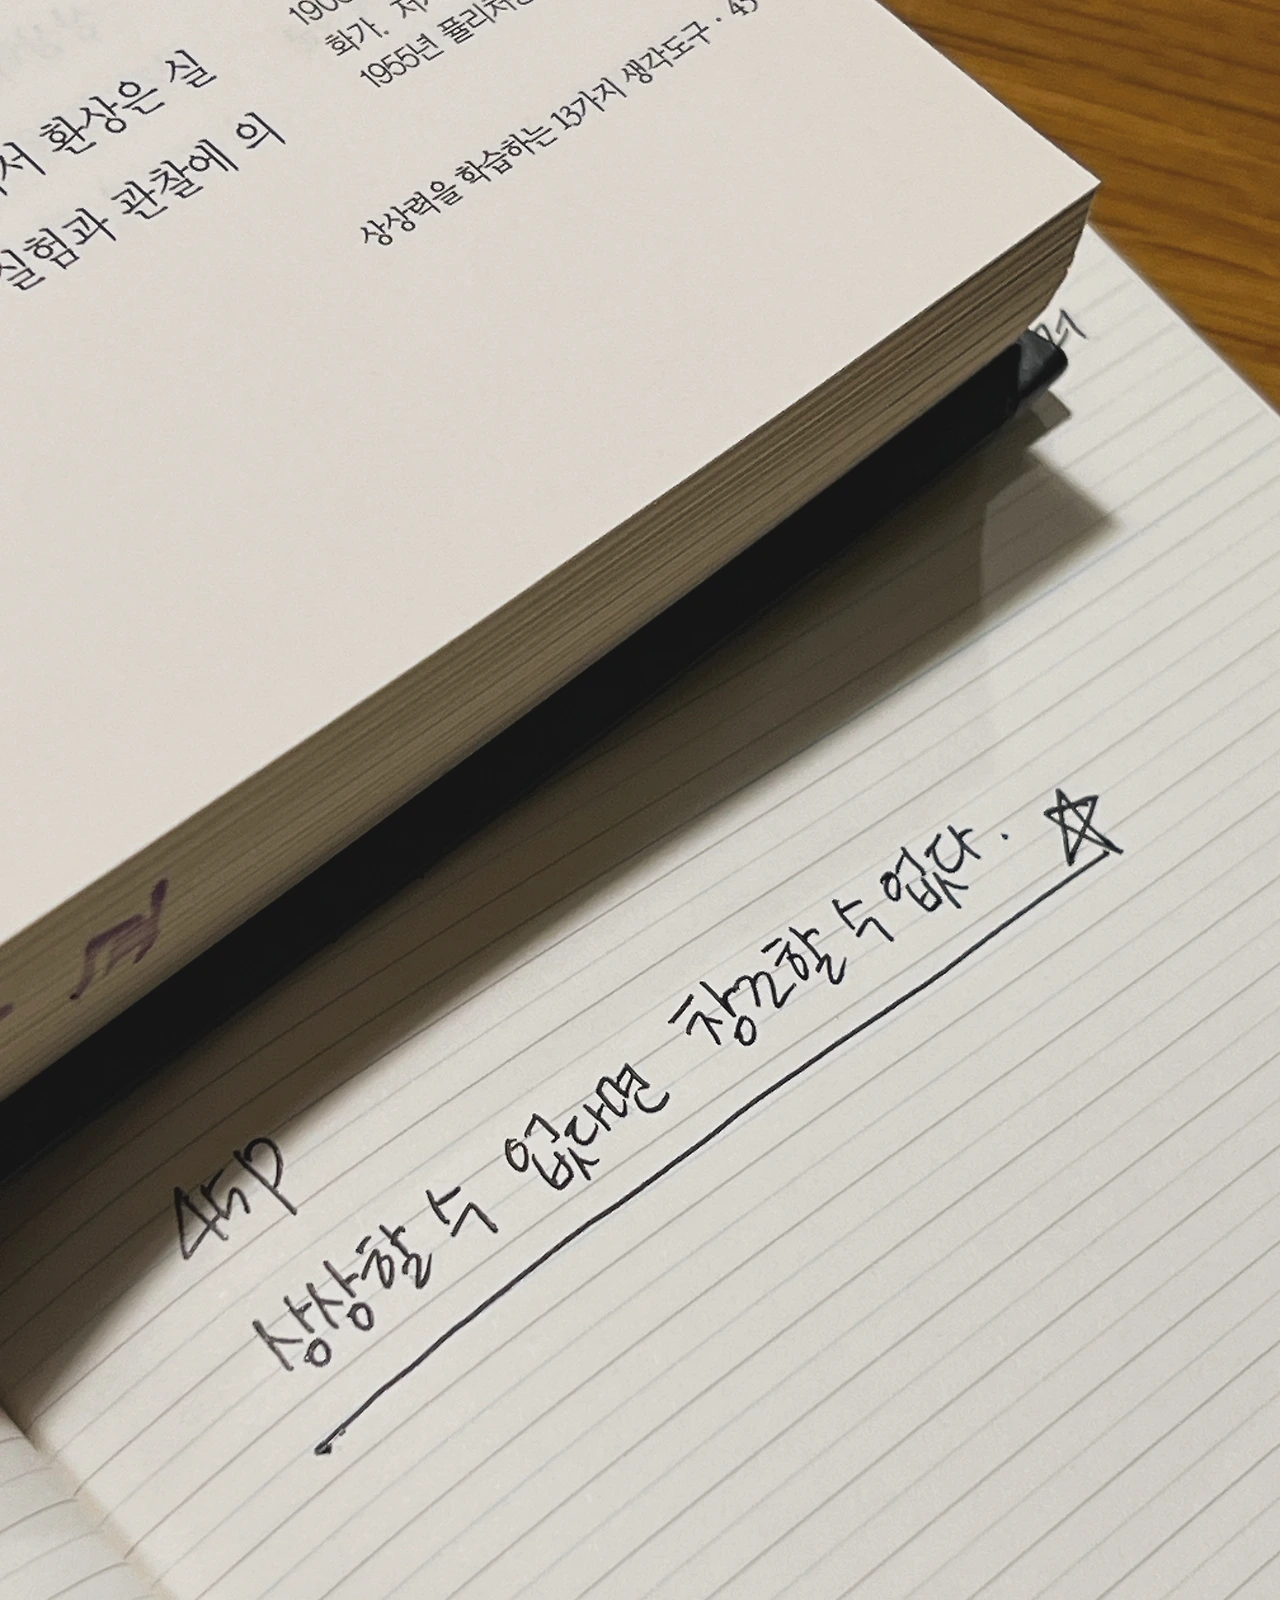 서 환상은 실
실험과 관찰에 의
화가.
1955년 퓰리처
상상력을 학습하는 13가지 생각도구 · 45
45p
상상할 수 없다면 창조할 수 없다.